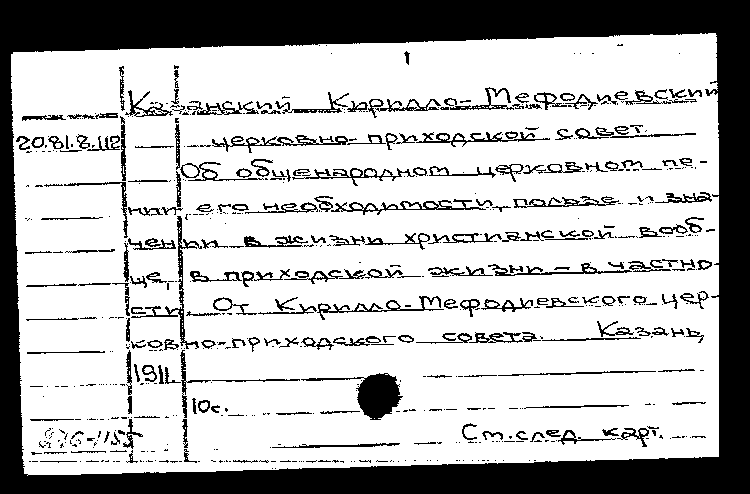 Казанский Кирилло-Мефодиевский
20.81.8.112 церковно-приходской совет
Об общенародном церковном пе-
нии, его необходимости, пользе и зна-
чении в жизни христианской вооб-
ще, в приходской жизни – в частно-
сти. От Кирилло-Мефодиевского цер-
ковно-приходского совета. Казань,
1911.
10с.
276-1155
См. след. карт.